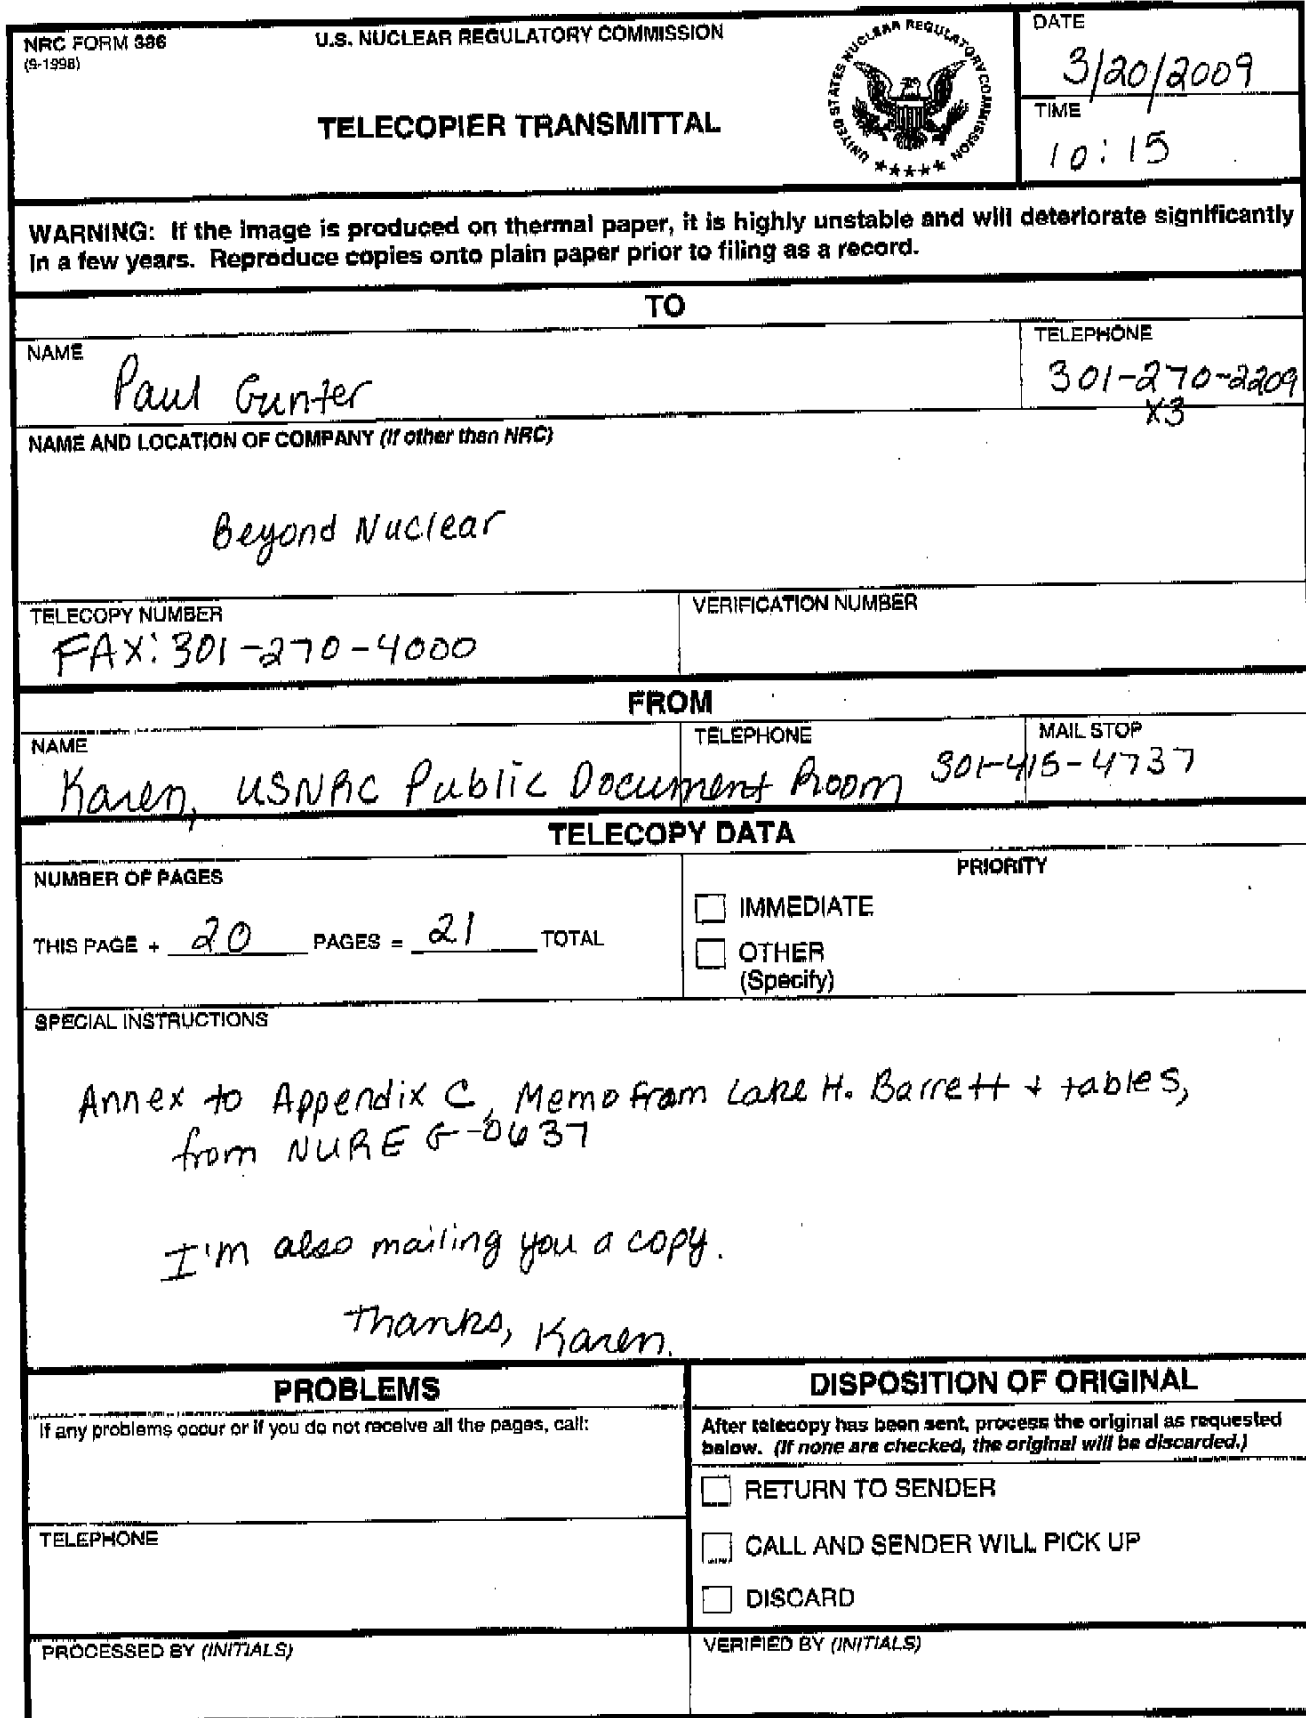 NRC FORM 386
(9-1998)
U.S. NUCLEAR REGULATORY COMMISSION
TELECOPIER TRANSMITTAL
UNITED STATES NUCLEAR REGULATORY COMMISSION
DATE
3/20/2009
TIME
10:15
WARNING: If the image is produced on thermal paper, it is highly unstable and will deteriorate significantly
in a few years. Reproduce copies onto plain paper prior to filing as a record.
TO
NAME
Paul Gunter
TELEPHONE
301-270-2209
x3
NAME AND LOCATION OF COMPANY (If other than NRC)
Beyond Nuclear
TELECOPY NUMBER
FAX: 301-270-4000
VERIFICATION NUMBER
FROM
NAME
TELEPHONE
MAIL STOP
Karen, USNRC Public Document Room 301-415-4737
TELECOPY DATA
NUMBER OF PAGES
THIS PAGE + 20 PAGES = 21 TOTAL
PRIORITY
IMMEDIATE
OTHER
(Specify)
SPECIAL INSTRUCTIONS
Annex to Appendix C, Memo from Lake H. Barrett + tables,
from NUREG-0637
I'm also mailing you a copy.
Thanks, Karen.
PROBLEMS
If any problems occur or if you do not receive all the pages, call:
TELEPHONE
DISPOSITION OF ORIGINAL
After telecopy has been sent, process the original as requested
below. (If none are checked, the original will be discarded.)
RETURN TO SENDER
CALL AND SENDER WILL PICK UP
DISCARD
PROCESSED BY (INITIALS)
VERIFIED BY (INITIALS)